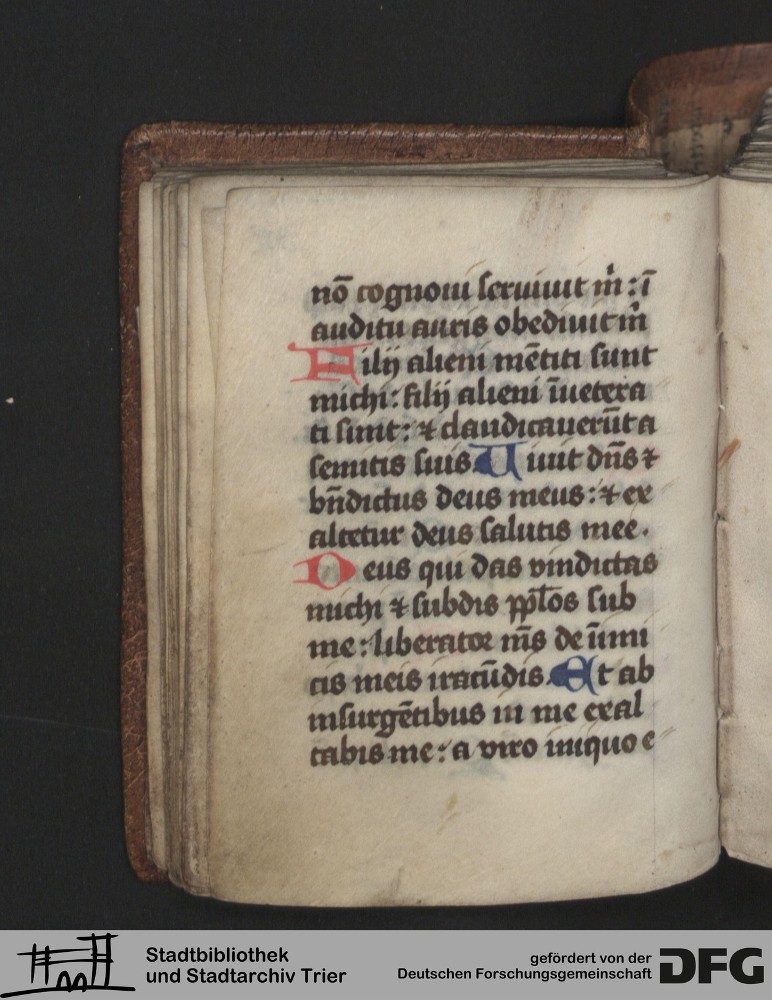 nō cognoui seruiuit m̄ : ī
auditu auris obediuit m̄
Filij alieni mētiti sunt
michi : filij alieni īuetera
ti sunt : ⁊ claudicauerūt a
semitis suis. Uiuit dn̄s ⁊
bn̄dictus deus meus : ⁊ ex
altetur deus salutis mee.
Deus qui das vindictas
michi ⁊ subdis pp̄los sub
me : liberator m̄s de inimi
cis meis iracūdis. Et ab
insurgētibus in me exal
tabis me : a viro iniquo e
Stadtbibliothek
und Stadtarchiv Trier
gefördert von der
Deutschen Forschungsgemeinschaft
DFG